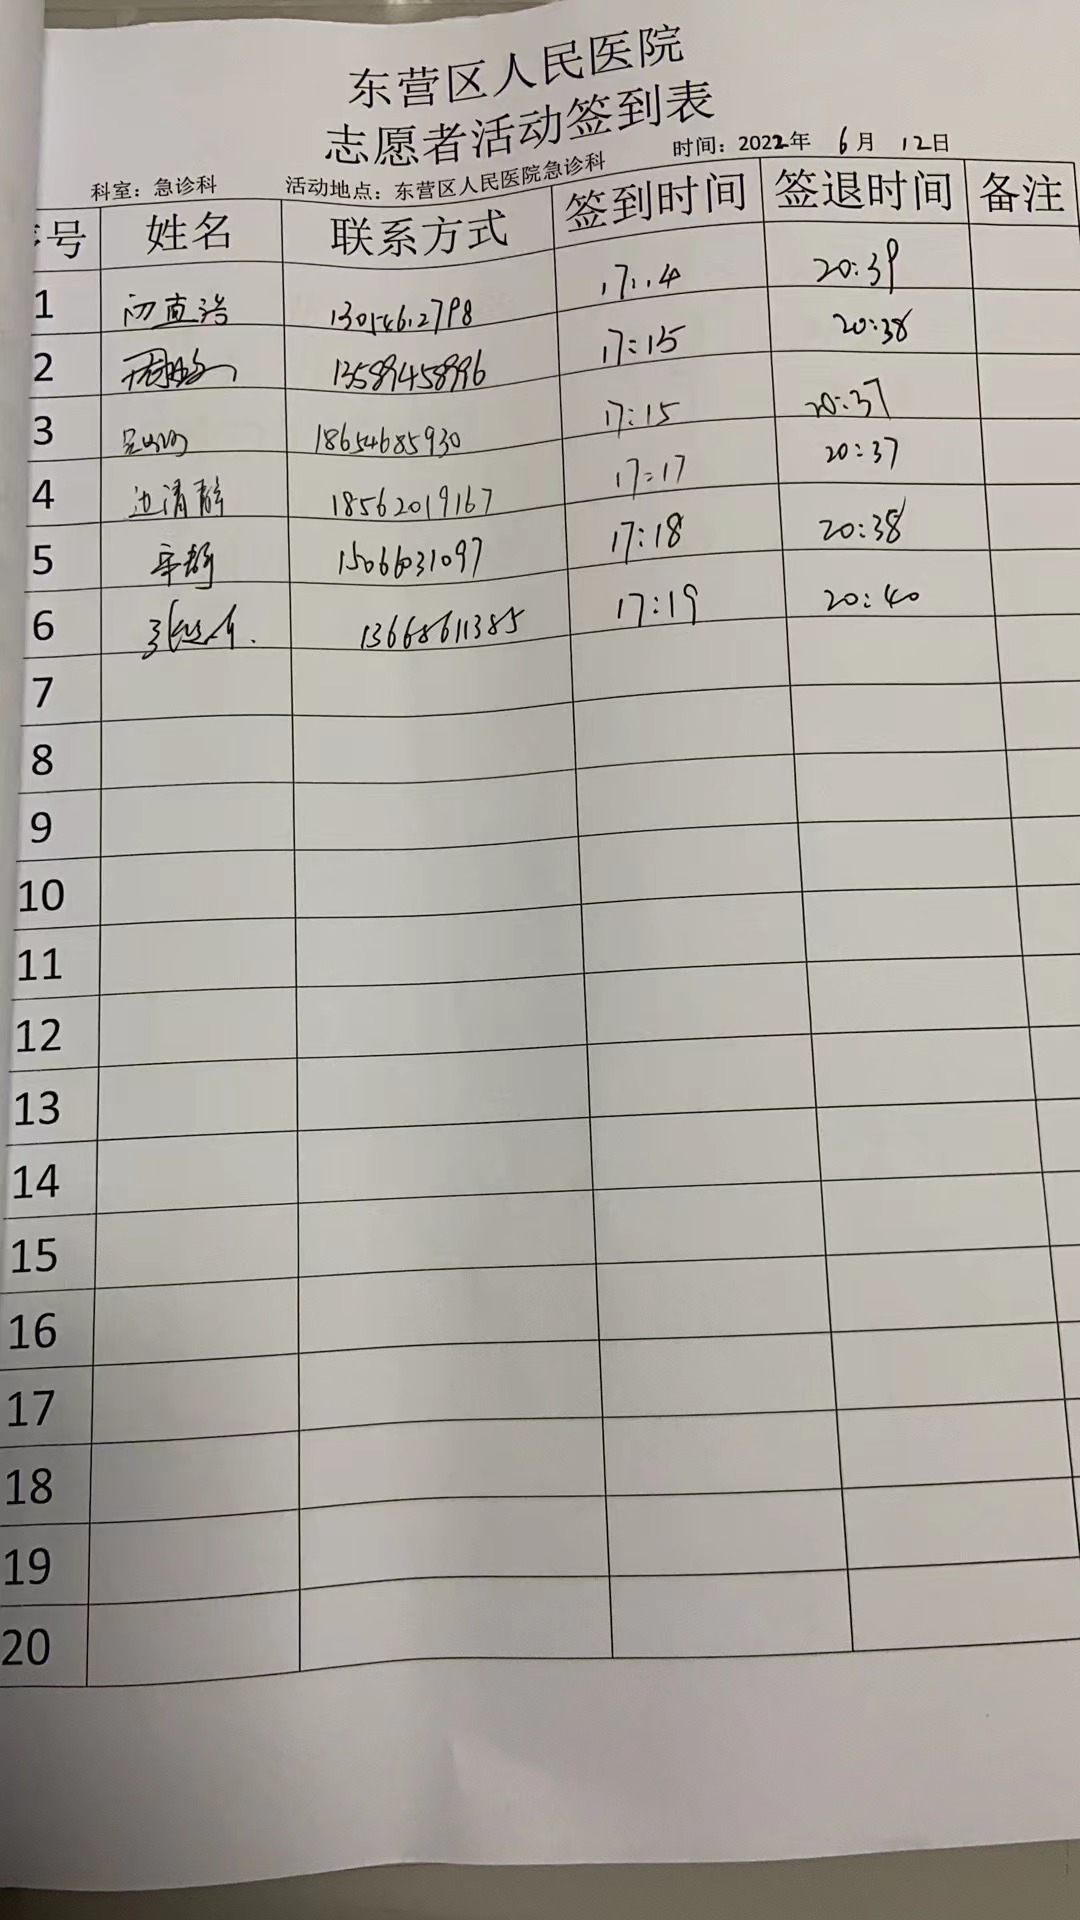 东营区人民医院
志愿者活动签到表
科室：急诊科 活动地点：东营区人民医院急诊科 时间：2022年 6月 12日
号 姓名 联系方式 签到时间 签退时间 备注
1 13054612798 20:39
2 13589458996 17:15 20:38
3 18654685930 17:15 20:37
4 边清静 18562019167 17:17 20:37
5 15066031097 17:18 20:38
6 13668611385 17:19 20:40
7
8
9
10
11
12
13
14
15
16
17
18
19
20